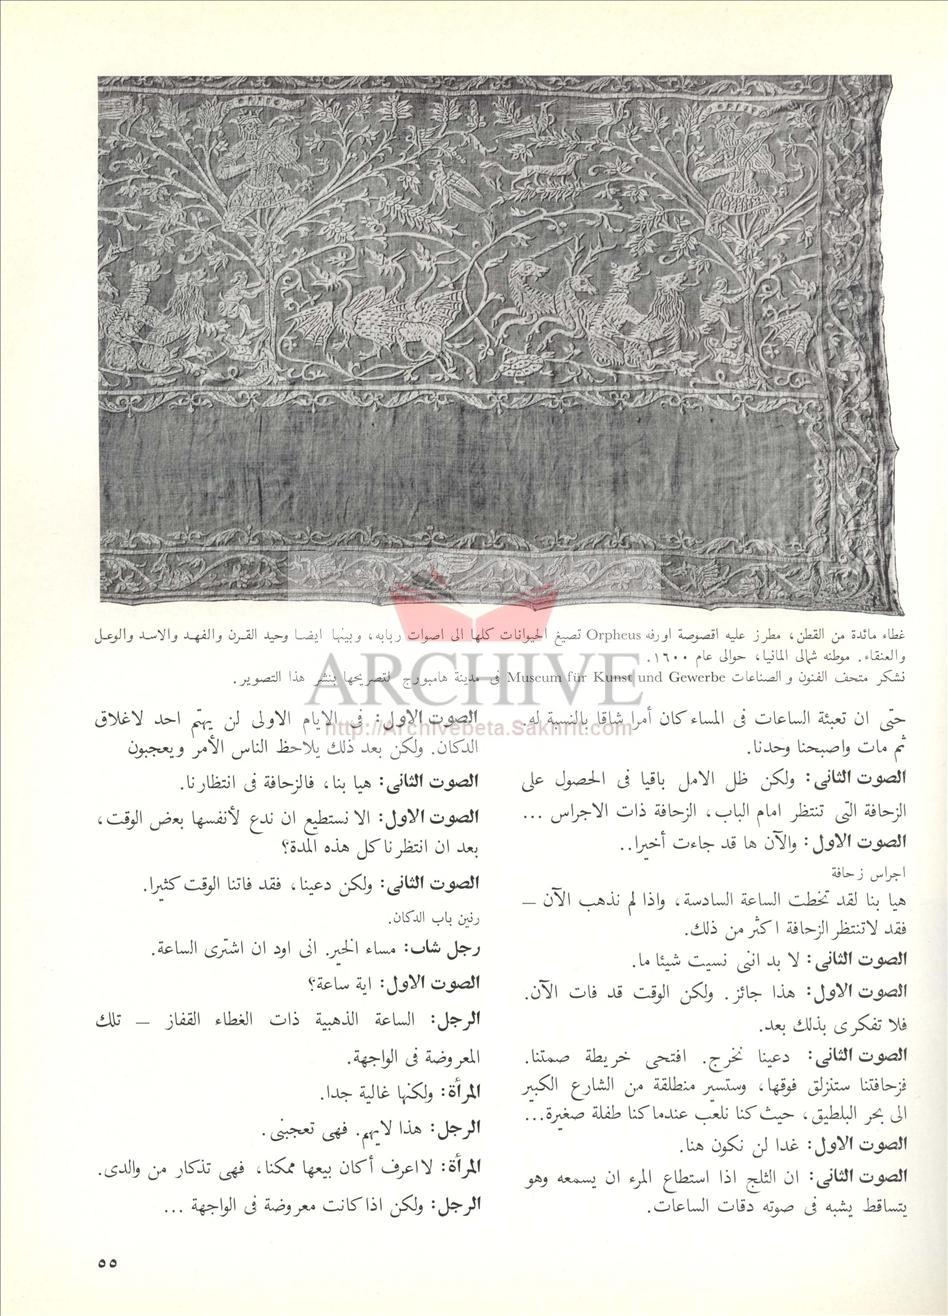 غطاء مائدة من القطن، مطرز عليه اقصوصة اورفه Orpheus تصيغ الحيوانات كلها الى اصوات ربابه، وبينها ايضا وحيد القرن والفهد والاسد والوعل
والعنقاء. موطنه شمالى المانيا، حوالى عام ١٦٠٠.
نشكر متحف الفنون والصناعات Museum für Kunst und Gewerbe فى مدينة هامبورج لتصريحها بنشر هذا التصوير.
ARCHIVE
http://Archivebeta.Sakhrit.com
حتى ان تعبئة الساعات فى المساء كان أمرا شاقا بالنسبة له.
ثم مات واصبحنا وحدنا.
الصوت الثانى: ولكن ظل الامل باقيا فى الحصول على
الزحافة التى تنتظر امام الباب، الزحافة ذات الاجراس ...
الصوت الاول: والآن ها قد جاءت أخيرا..
اجراس زحافة
هيا بنا لقد تخطت الساعة السادسة، واذا لم نذهب الآن –
فقد لاتنتظر الزحافة اكثر من ذلك.
الصوت الثانى: لا بد اننى نسيت شيئا ما.
الصوت الاول: هذا جائز. ولكن الوقت قد فات الآن.
فلا تفكرى بذلك بعد.
الصوت الثانى: دعينا نخرج. افتحى خريطة صمتنا.
فزحافتنا ستنزلق فوقها، وستسير منطلقة من الشارع الكبير
الى بحر البلطيق، حيث كنا نلعب عندما كنا طفلة صغيرة...
الصوت الاول: غدا لن نكون هنا.
الصوت الثانى: ان الثلج اذا استطاع المرء ان يسمعه وهو
يتساقط يشبه فى صوته دقات الساعات.
الصوت الاول: فى الايام الاولى لن يهتم احد لاغلاق
الدكان. ولكن بعد ذلك يلاحظ الناس الأمر ويعجبون
الصوت الثانى: هيا بنا، فالزحافة فى انتظارنا.
الصوت الاول: الا نستطيع ان ندع لأنفسها بعض الوقت،
بعد ان انتظرنا كل هذه المدة؟
الصوت الثانى: ولكن دعينا، فقد فاتنا الوقت كثيرا.
رنين باب الدكان.
رجل شاب: مساء الخير. انى اود ان اشترى الساعة.
الصوت الاول: اية ساعة؟
الرجل: الساعة الذهبية ذات الغطاء القفاز – تلك
المعروضة فى الواجهة.
المرأة: ولكنها غالية جدا.
الرجل: هذا لايهم. فهى تعجبنى.
المرأة: لااعرف أكان بيعها ممكنا، فهى تذكار من والدى.
الرجل: ولكن اذا كانت معروضة فى الواجهة ...
٥٥